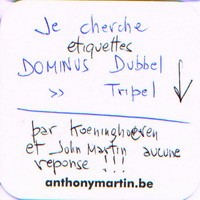 Je cherche
etiquettes
DOMINUS Dubbel
>> Tripel
par Koeninghoeren
et John Martin aucune
reponse !!!
anthonymartin.be